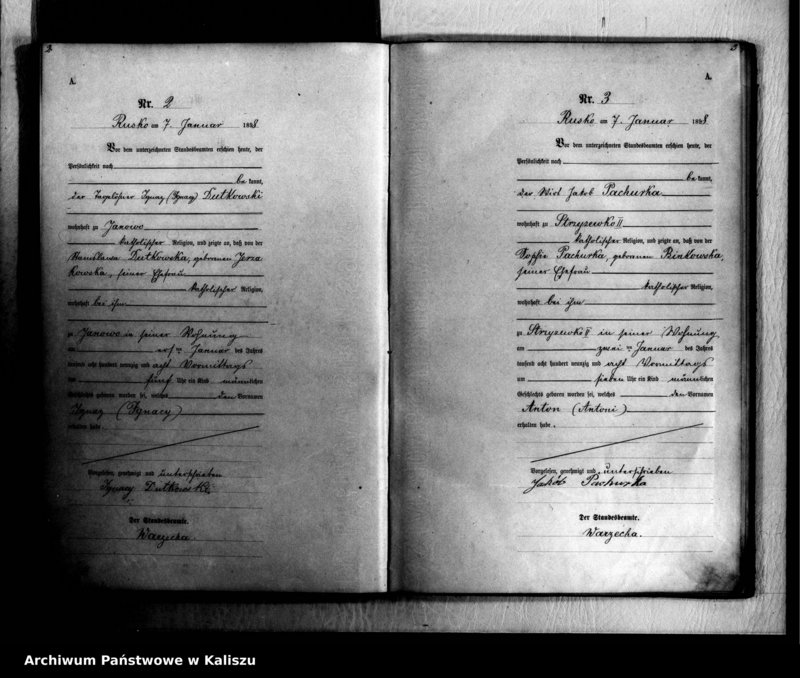 2.
A.
Nr. 2
Rusko am 7. Januar 1898
Vor dem unterzeichneten Standesbeamten erschien heute, der
Persönlichkeit nach
be kannt,
der Tagelöhner Ignaz (Ignacy) Dutkowski
wohnhaft zu Janowo
katholischer Religion, und zeigte an, daß von der
Stanislawa Dutkowska, geborenen
seiner Ehefrau
katholischer Religion,
wohnhaft bei ihm
zu Janowo in seiner Wohnung
am ersten Januar des Jahres
tausend acht hundert neunzig und acht Vormittags
um fünf Uhr ein Kind männlichen
Geschlechts geboren worden sei, welches den Vornamen
Ignaz (Ignacy)
erhalten habe.
Vorgelesen, genehmigt und unterschrieben
Ignacy Dutkowski
Der Standesbeamte.
Warzecha.
3
A.
Nr. 3
Rusko am 7. Januar 1898.
Vor dem unterzeichneten Standesbeamten erschien heute, der
Persönlichkeit nach
be kannt,
der Wirt Jakob Pachurka
wohnhaft zu Stryzewko II
katholischer Religion, und zeigte an, daß von der
Sophie Pachurka, geborenen Binkowska,
seiner Ehefrau
katholischer Religion,
wohnhaft bei ihm
zu Stryzewko II in seiner Wohnung
am zwei ten Januar des Jahres
tausend acht hundert neunzig und acht Vormittags
um sieben Uhr ein Kind männlichen
Geschlechts geboren worden sei, welches den Vornamen
Anton (Antoni)
erhalten habe.
Vorgelesen, genehmigt und unterschrieben
Jakób Pachurka
Der Standesbeamte.
Warzecha.
Archiwum Państwowe w Kaliszu